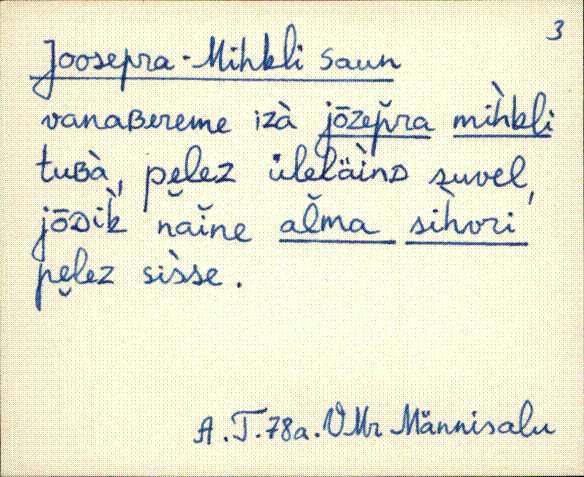 3
Joosepra-Mihkli saun
vanaʙereme izà jōzep̆ra mìhkli
tuʙà, pe̮lez ülelä̀inᴅ suvel,
jōᴅik̀ n̆ăine al̆ma sìhvri
pe̮lez sìsse.
A.T.78a. VMr Männisalu